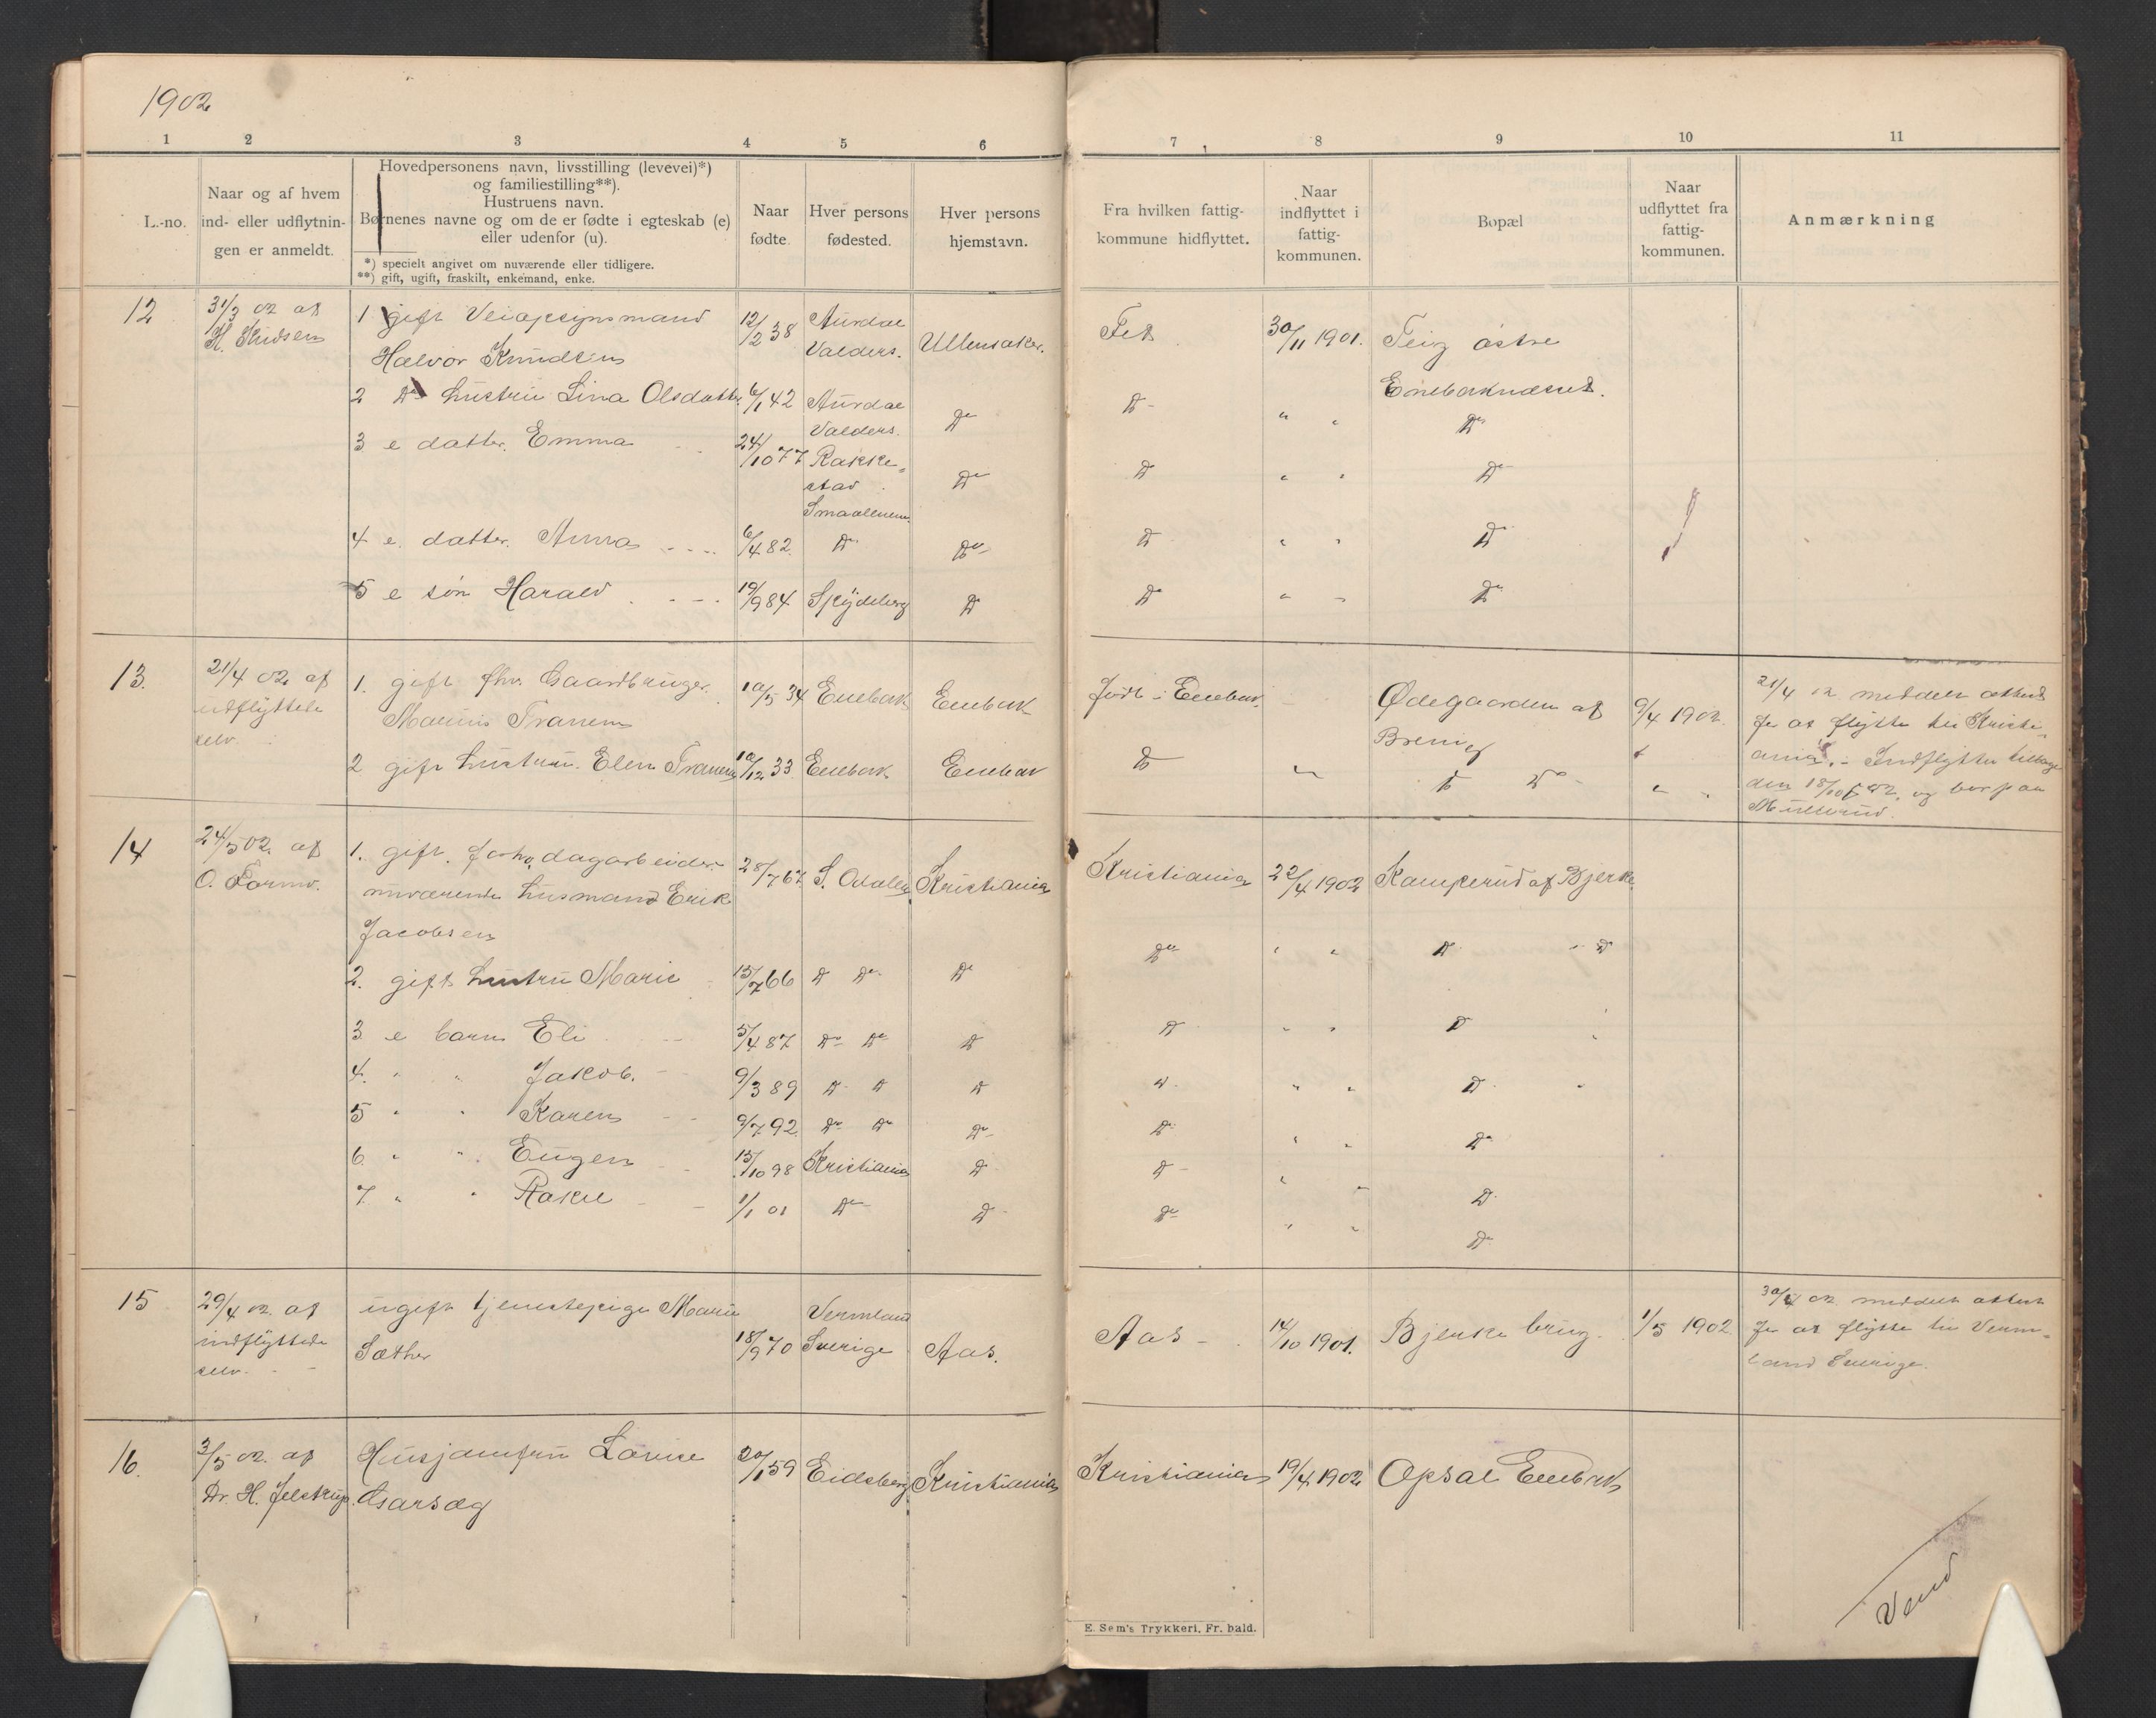 1902
1 2 3 4 5 6
L.-no.
Naar og af hvem
ind- eller udflytnin-
gen er anmeldt.
Hovedpersonens navn, livsstilling (levevei)*)
og familiestilling**).
Hustruens navn.
Børnenes navne og om de er fødte i egteskab (e)
eller udenfor (u).
*) specielt angivet om nuværende eller tidligere.
**) gift, ugift, fraskilt, enkemand, enke.
Naar
fødte.
Hver persons
fødested.
Hver persons
hjemstavn.
12
31/3 02 af
1 gift Veiopsynsmand
12/2 38
Aurdal
Valders.
Ullensaker.
Halvor Knudsen
2 Do hustru Lina Olsdatter
6/1 42
Aurdal
Valders.
Do
3 e datter. Emma
24/10 77
Rakke-
stad.
Smaalenene
Do
4 e. datter. Anna
6/4 82
Do
Do
5 e søn Harald
19/9 84
Spydeberg
Do
13.
21/4 02 af
udflyttede
selv.
1. gift fhv. Gaardbruger.
10/5 34
Enebak
Enebak
Marius Tranem
2 gift hustru. Elen Tranem
10/12 33
Enebak
Enebak
14
24/5 02. af
1. gift. forhv. dagarbeider
nuværende husmand Erik
Jacobsen
28/7 67
S. Odalen
Kristiania
2. gift hustru Marie
15/7 66
Do Do
Do
3 e barn Eli
5/4 87
Do Do
Do
4. " " Jakob.
9/3 89
Do Do
Do
5 " " Karen
9/7 92
Do Do
Do
6 " " Eugen
15/10 98
Kristiania
Do
7. " " Rakel
1/1 01
Do
Do
15
29/4 02. af
indflyttede
selv.
ugift tjenestepige Marie
Sæther
18/9 70
Vermland
Sverige
Aas.
16.
3/5 02. af
Dr. H. Jelstrup.
Husjomfru Lovise
20/1 59
Eidsberg
Kristiania
7 8 9 10 11
Fra hvilken fattig-
kommune hidflyttet.
Naar
indflyttet i
fattig-
kommunen.
Bopæl
Naar
udflyttet fra
fattig-
kommunen.
Anmærkning
Fet
30/11 1901.
Teig østre
Enebaknesset.
Do " " Do
Do " " Do
Do " " Do
Do " " Do
født i Enebak
Ødegaarden af
9/4 1902.
21/4 02 meddelt attest
for at flytte til Kristi-
ania. - Indflyttet tilbage
den 18/10 02. og bor paa
Do " Do Do " "
Kristiania
22/4 1902
Kamperud af Bjerke
Do " " Do " Do
Do " " Do "
Do " " Do "
Do " " Do
Do " " Do
Do " " Do
Aas
14/10 1901.
Bjerke brug.
1/5 1902.
30/4 02 meddelt attest
for at flytte til Verm-
land Sverige.
Kristiania
19/4 1902
Opsal Enebak
Vend
E. Sem's Trykkeri, Fr. hald.